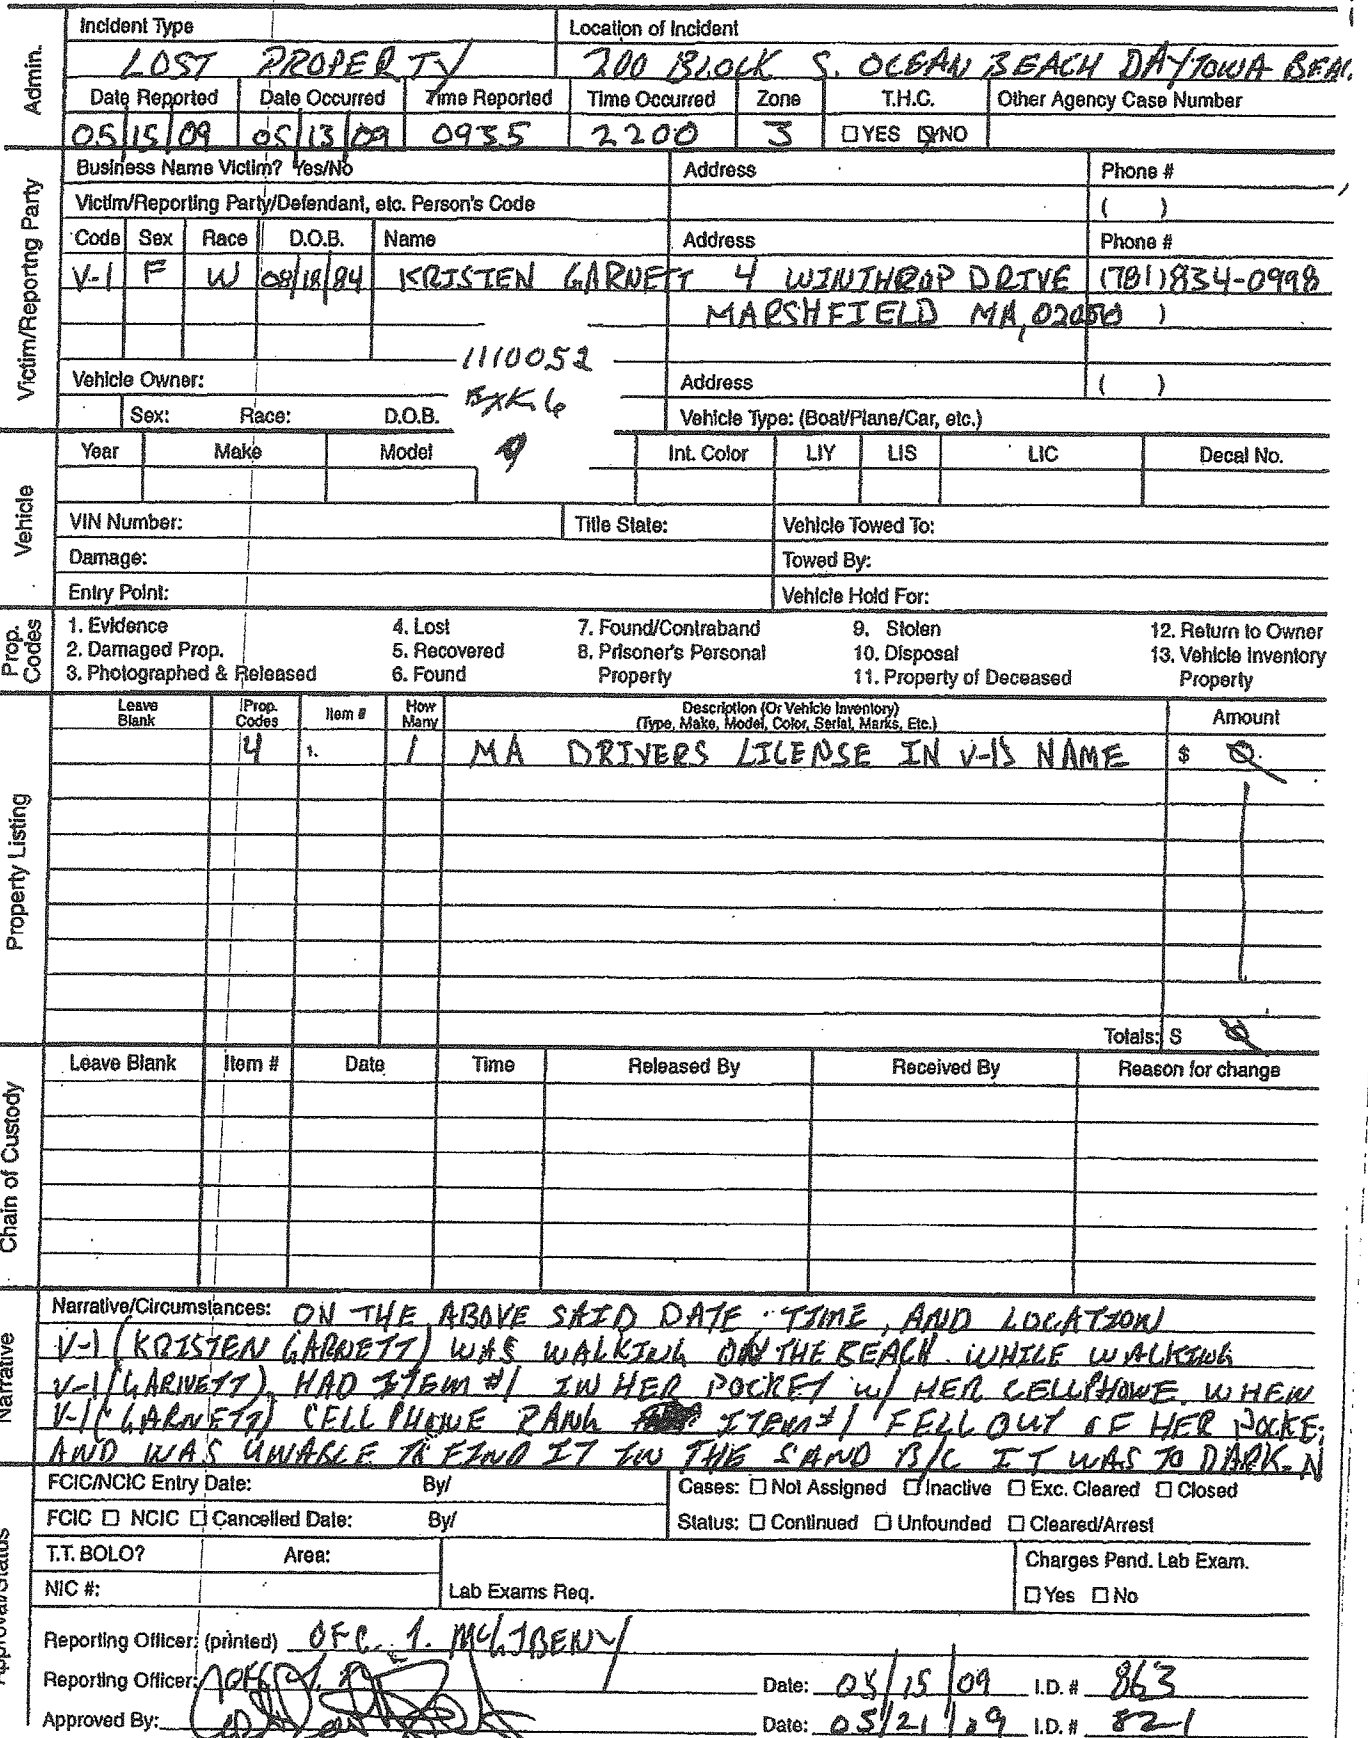 Admin.
Incident Type Location of Incident
LOST PROPERTY 200 BLOCK S. OCEAN BEACH DAYTOWA BEAC
Date Reported Date Occurred Time Reported Time Occurred Zone T.H.C. Other Agency Case Number
05/15/09 05/13/09 0935 2200 3 ☐YES ☒NO
Victim/Reporting Party
Business Name Victim? Yes/No Address Phone #
Victim/Reporting Party/Defendant, etc. Person's Code ( )
Code Sex Race D.O.B. Name Address Phone #
V-1 F W 08/18/84 KRISTEN GARNETT 4 WINTHROP DRIVE (781)834-0998
MARSHFIELD MA, 02050 )
1110052
Vehicle Owner: Address ( )
Sex: Race: D.O.B. Vehicle Type: (Boat/Plane/Car, etc.)
Vehicle
Year Make Model Int. Color LIY LIS LIC Decal No.
VIN Number: Title State: Vehicle Towed To:
Damage: Towed By:
Entry Point: Vehicle Hold For:
Prop. Codes
1. Evidence 4. Lost 7. Found/Contraband 9. Stolen 12. Return to Owner
2. Damaged Prop. 5. Recovered 8. Prisoner's Personal 10. Disposal 13. Vehicle Inventory
3. Photographed & Released 6. Found Property 11. Property of Deceased Property
Property Listing
Leave Blank Prop. Codes Item # How Many Description (Or Vehicle Inventory) (Type, Make, Model, Color, Serial, Marks, Etc.) Amount
4 1. 1 MA DRIVERS LICENSE IN V-1S NAME $ 0
Totals: $ 0
Chain of Custody
Leave Blank Item # Date Time Released By Received By Reason for change
Narrative
Narrative/Circumstances: ON THE ABOVE SAID DATE, TIME, AND LOCATION
V-1 (KRISTEN GARNETT) WAS WALKING ON THE BEACH. WHILE WALKING
V-1 (GARNETT), HAD ITEM #1 IN HER POCKET w/ HER CELLPHONE. WHEN
V-1 (GARNETT) CELL PHONE RANG ITEM #1 FELL OUT OF HER POCKE
AND WAS UNABLE TO FIND IT IN THE SAND B/C IT WAS TO DARK. N
Approval/Status
FCIC/NCIC Entry Date: By/ Cases: ☐ Not Assigned ☐ Inactive ☐ Exc. Cleared ☐ Closed
FCIC ☐ NCIC ☐ Cancelled Date: By/ Status: ☐ Continued ☐ Unfounded ☐ Cleared/Arrest
T.T. BOLO? Area: Charges Pend. Lab Exam.
NIC #: Lab Exams Req. ☐ Yes ☐ No
Reporting Officer: (printed) OFC.
Reporting Officer: Date: 05/15/09 I.D. # 863
Approved By: Date: 05/21/09 I.D. # 821